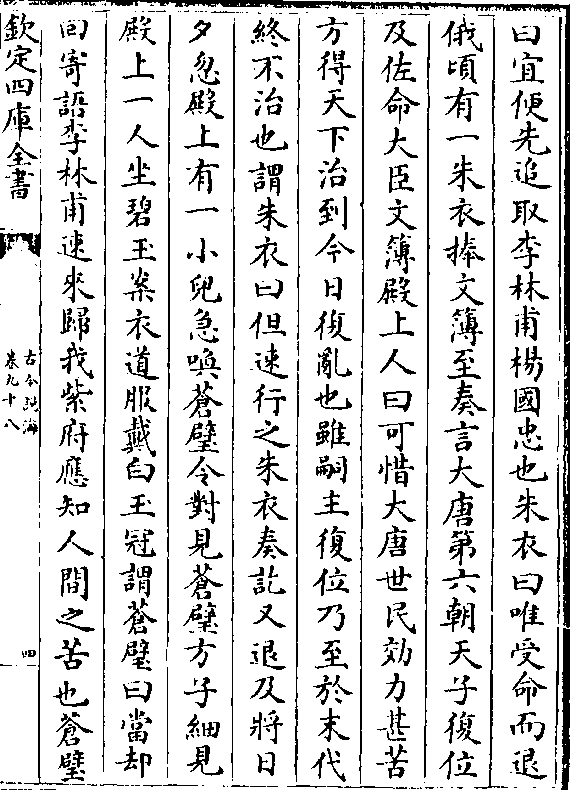 曰宜便先追取李林甫楊國忠也朱衣曰唯受命而退
俄頃有一朱衣捧文簿至奏言大唐第六朝天子復位
及佐命大臣文簿殿上人曰可惜大唐世民効力甚苦
方得天下治到今日復亂也雖嗣主復位乃至於末代
終不治也謂朱衣曰但速行之朱衣奏訖又退及將日
夕忽殿上有一小兒急喚蒼璧令對見蒼璧方子細見
殿上一人坐碧玉案衣道服戴白玉冠謂蒼璧曰當却
回寄語李林甫速來歸我紫府應知人間之苦也蒼璧
欽定四庫全書
古今說海
卷九十八
四